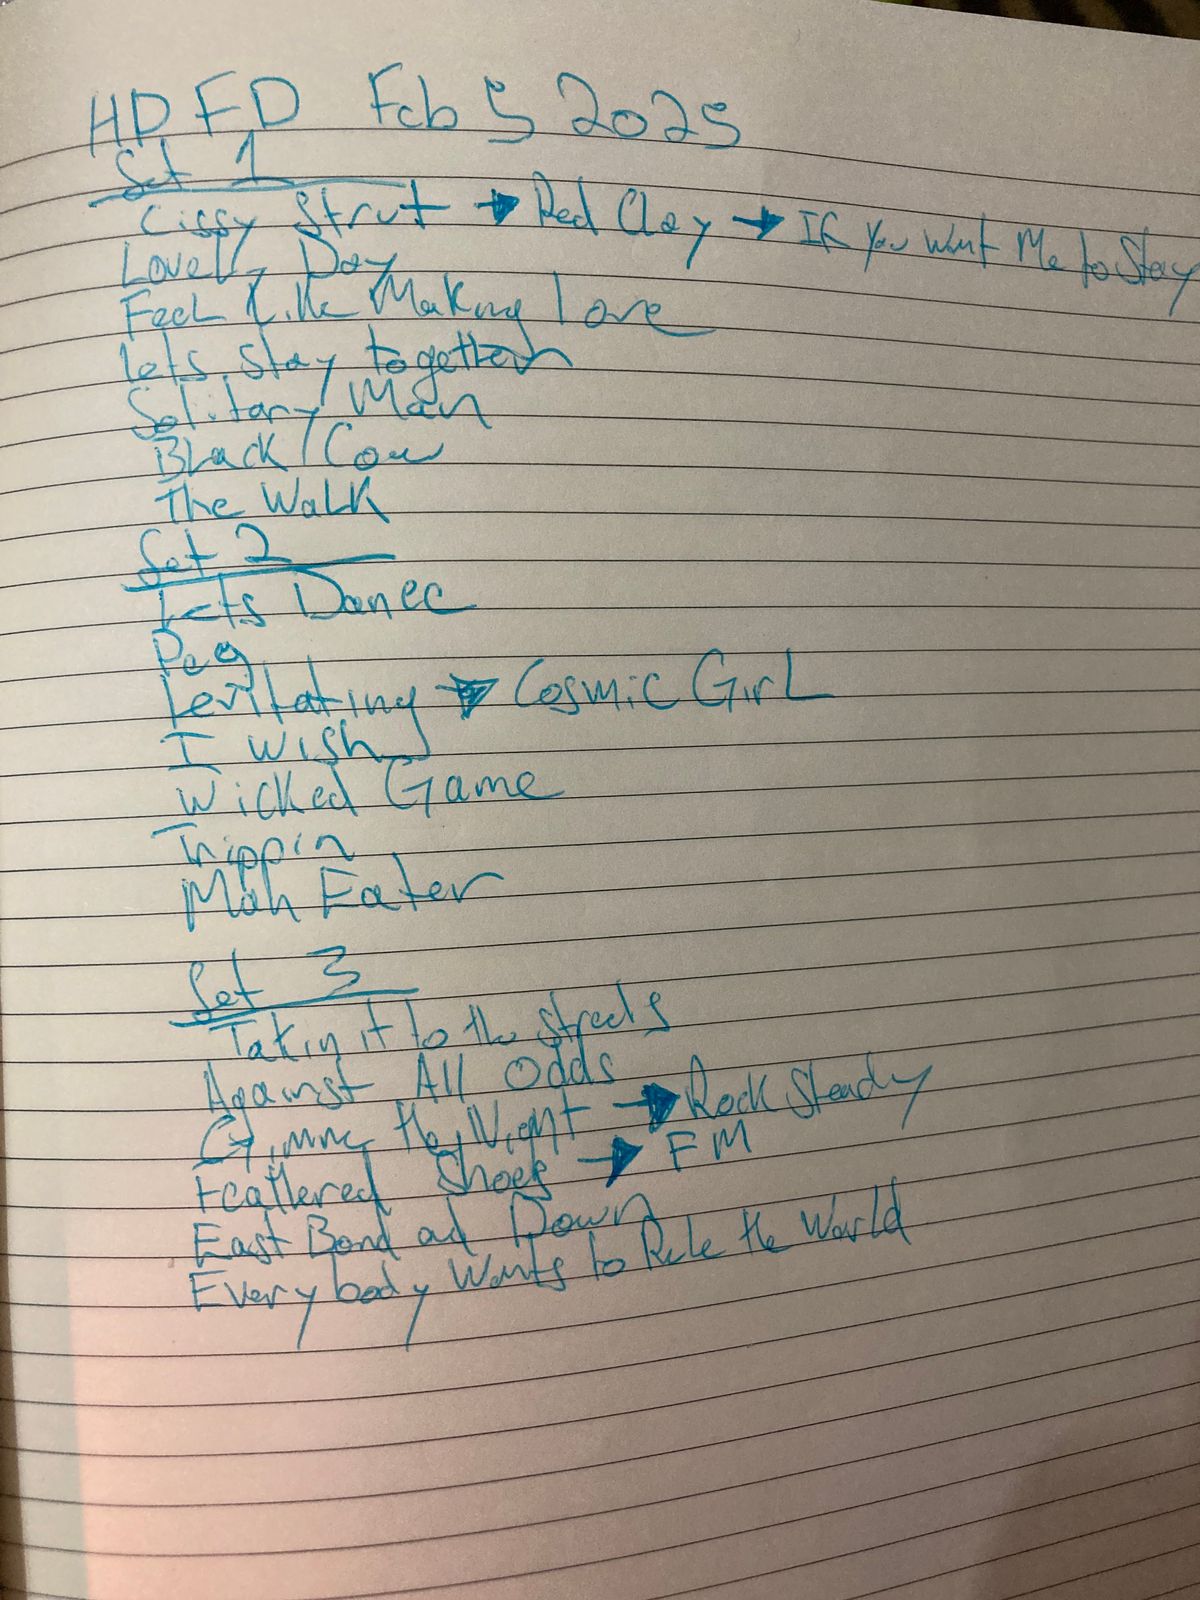 HDFD Feb 5 2025
Set 1
Cissy Strut → Red Clay → If You Want Me to Stay
Lovely Day
Feel Like Making Love
Lets stay together
Solitary Man
Black Cow
The Walk
Set 2
Lets Dance
Peg
Levitating → Cosmic Girl
I Wish
Wicked Game
Trippin
Man Eater
Set 3
Takin it to the streets
Against All Odds
Gimme the Night → Rock Steady
Feathered Shoes → FM
East Bond ad Down
Everybody Wants to Rule the World